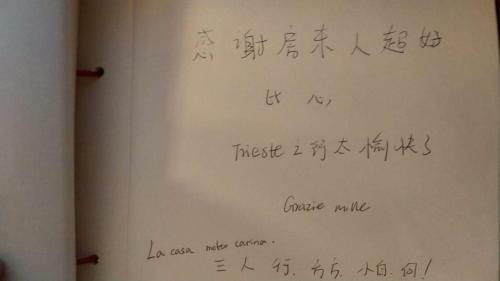 感谢房东人超好
比心,
Trieste之行太愉快了
Grazie mille
La casa molto carina.
三人行. 方方. 小白. 何!